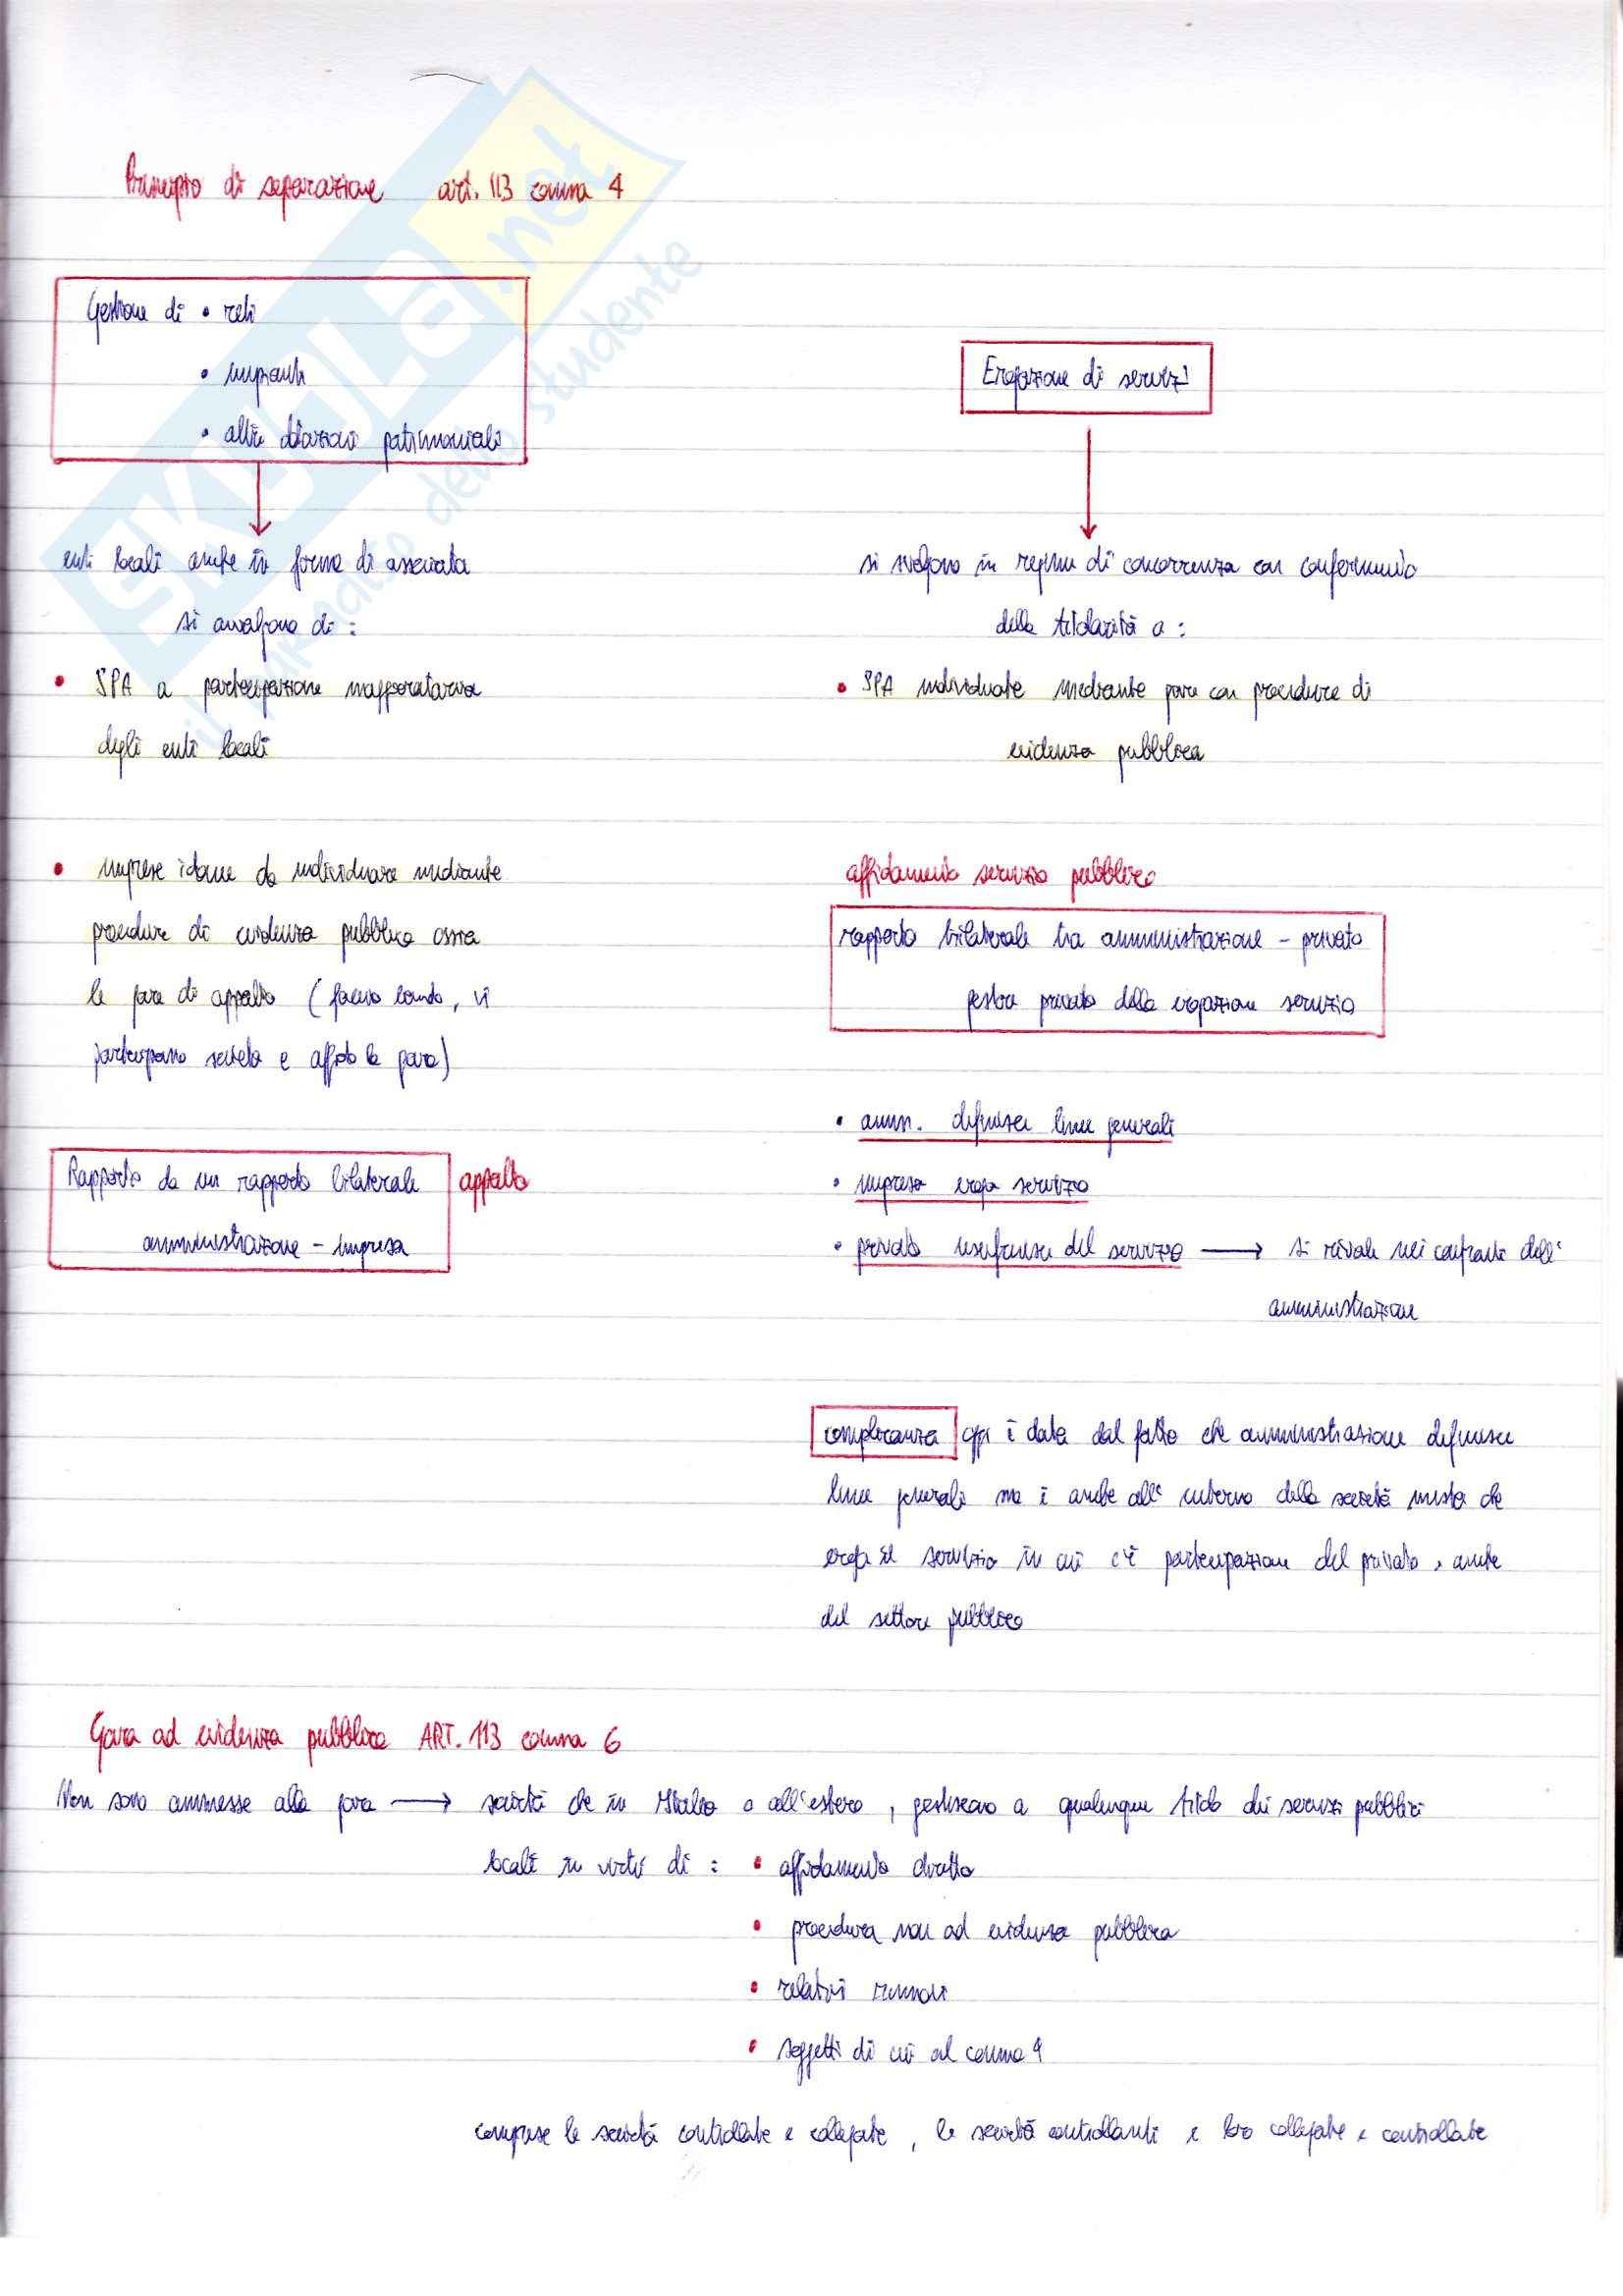 Principio di separazione art. 113 comma 4
Gestione di • reti
• impianti
• altre dotazioni patrimoniali
enti locali anche in forma di associata
si avvalgono di :
• SPA a partecipazione maggioritaria
degli enti locali
• imprese idonee da individuare mediante
procedure di evidenza pubblica ossia
le gare di appalto ( faccio bando, vi
partecipano società e affido la gara)
Rapporto da un rapporto bilaterale
amministrazione - impresa
appalto
Erogazione di servizi
si svolgono in regime di concorrenza con conferimento
della titolarità a :
• SPA individuate mediante gare con procedure di
evidenza pubblica
affidamento servizio pubblico
rapporto trilaterale tra amministrazione - privato
gestore privato della erogazione servizio
• amm. definisce linee generali
• impresa eroga servizio
• privato usufruisce del servizio → si rivale nei confronti dell'
amministrazione
complicanza oggi è data dal fatto che amministrazione definisce
linee generali ma è anche all' interno della società mista che
eroga il servizio in cui c'è partecipazione del privato, anche
del settore pubblico
Gara ad evidenza pubblica ART. 113 comma 6
Non sono ammesse alla gara → società che in Italia o all'estero, gestiscono a qualunque titolo dei servizi pubblici
locali in virtù di : • affidamento diretto
• procedura non ad evidenza pubblica
• relativi rinnovi
• soggetti di cui al comma 4
comprese le società controllate e collegate, le società controllanti e loro collegate e controllate
SKUOLA.net
il paradiso dello studente